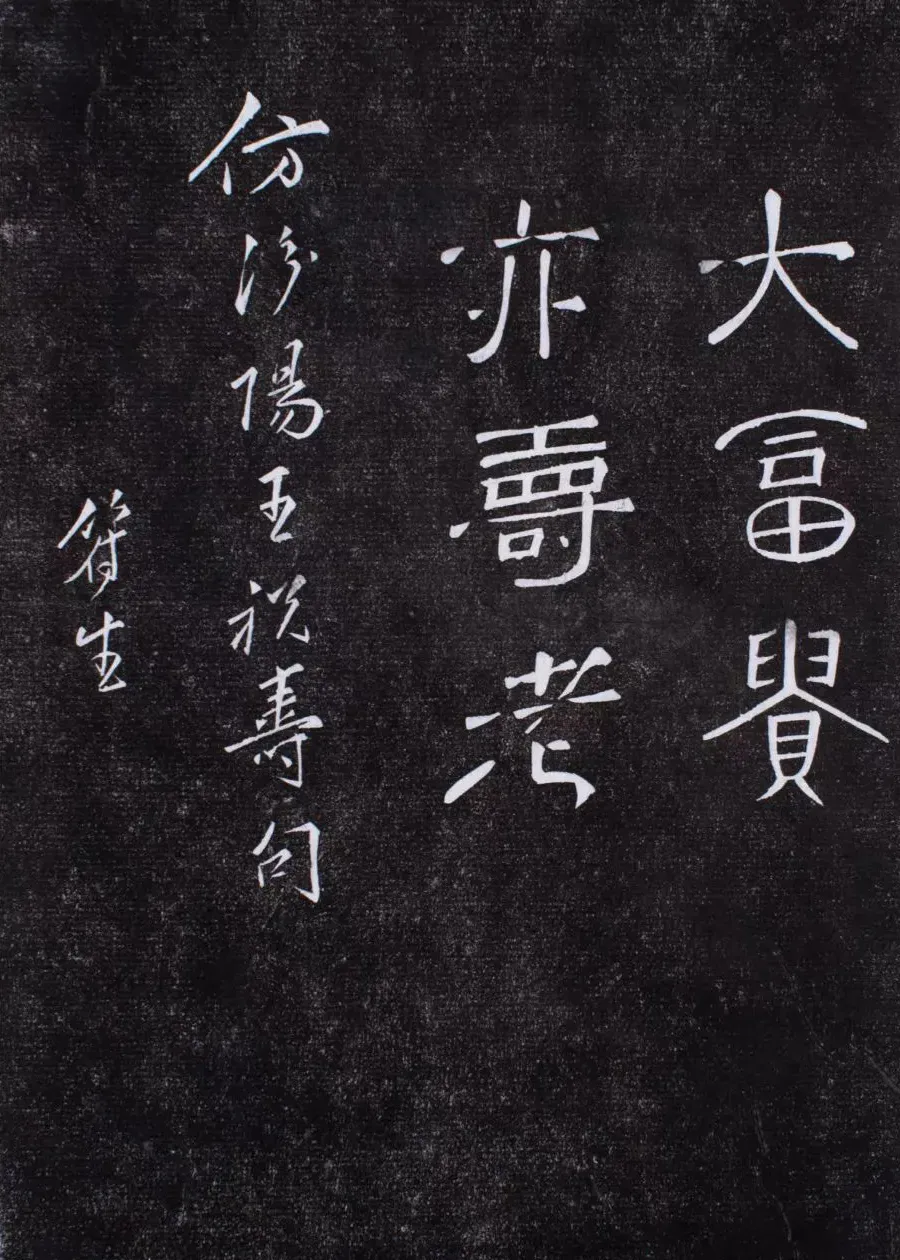 大富貴
亦壽考
仿汾陽王祝壽句
符生